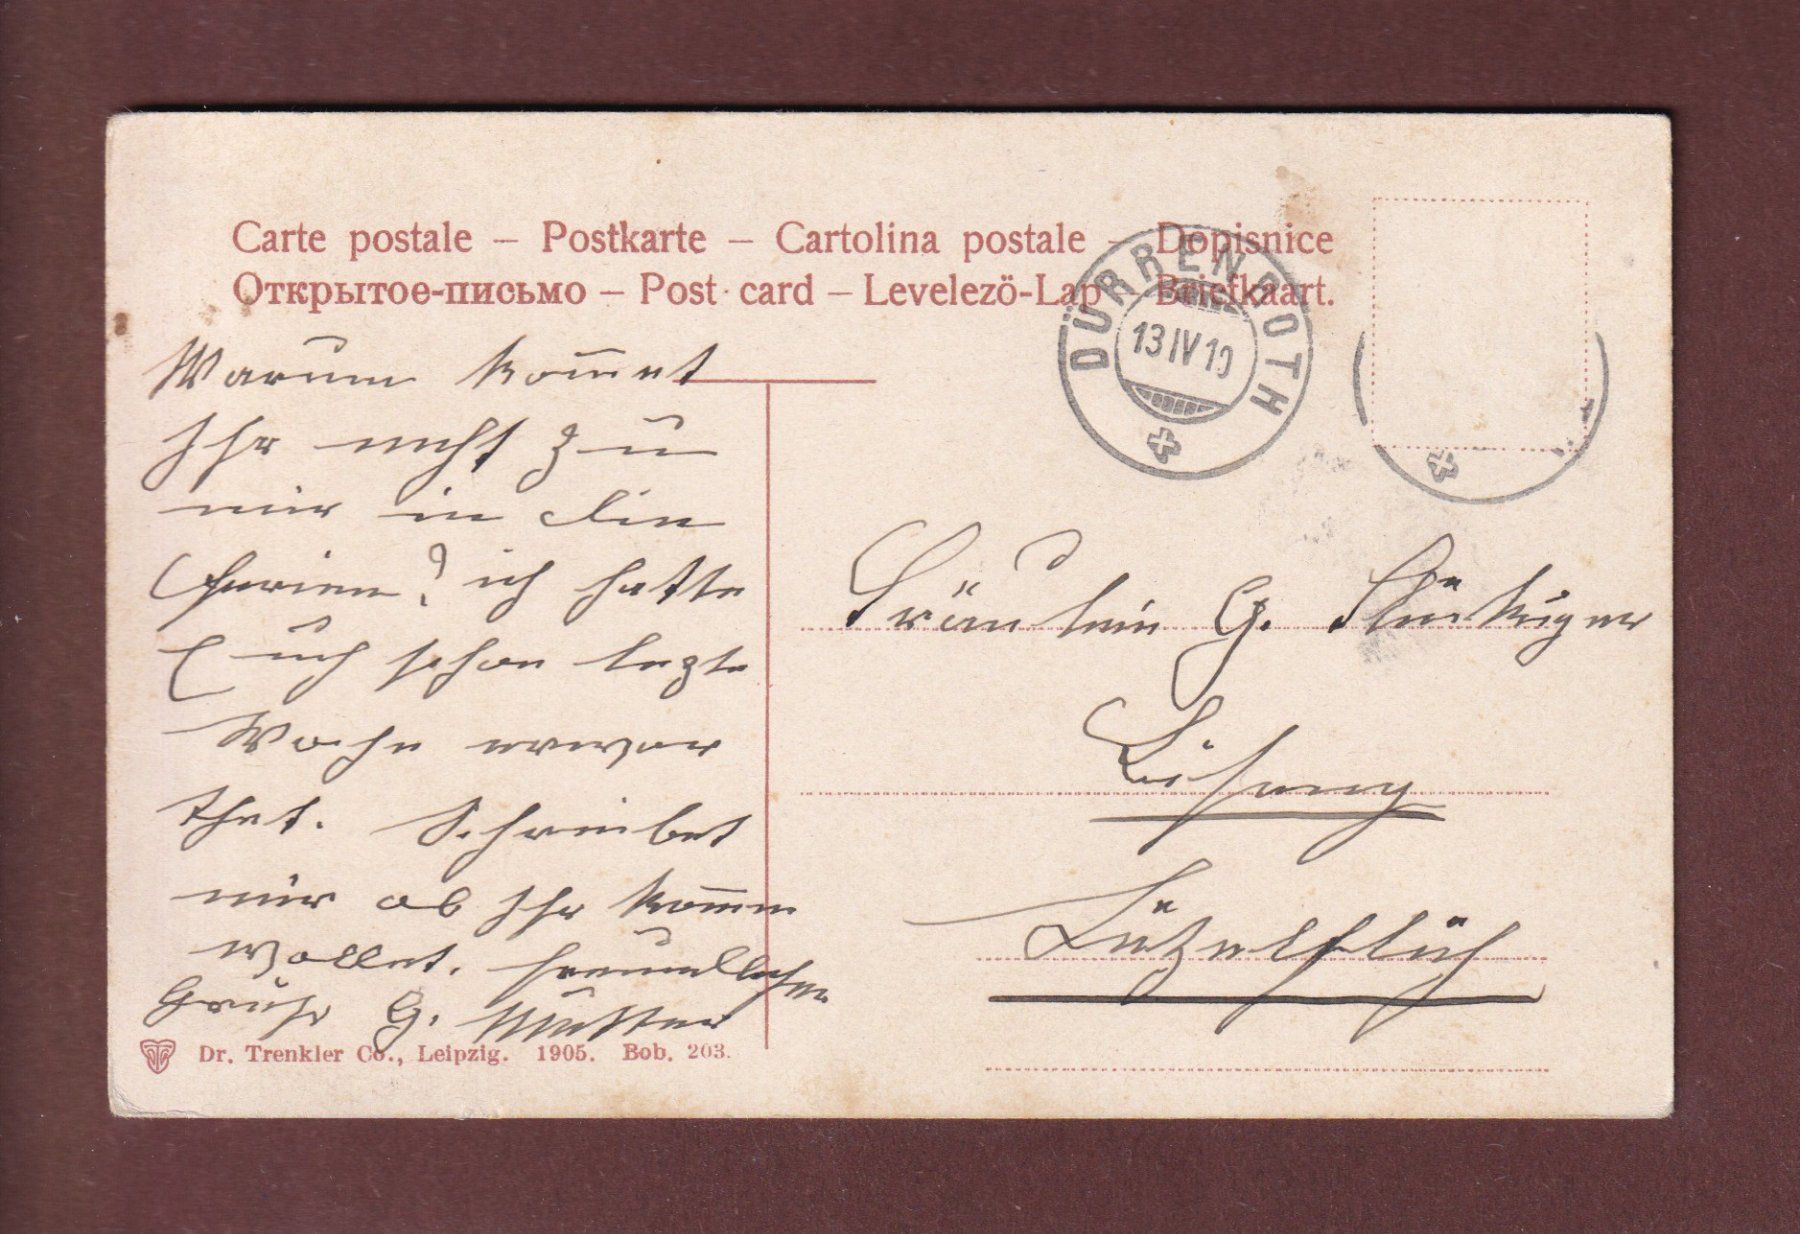 Carte postale – Postkarte – Cartolina postale – Dopisnice
Открытое-письмо – Post card – Levelezö-Lap – Briefkaart.
DÜRRENROTH
13 IV 10
Warum kom̅et
Ihr nicht zu
mir in die
Ferien? ich hatte
Euch schon lezte
Woche erwar
thet. Schreibet
mir ob Ihr kom̅en
wollet. freundlicher
Gruß G.
Fräulein G. Flückiger
Lützelflüh
Dr. Trenkler Co., Leipzig. 1905. Bob. 203.